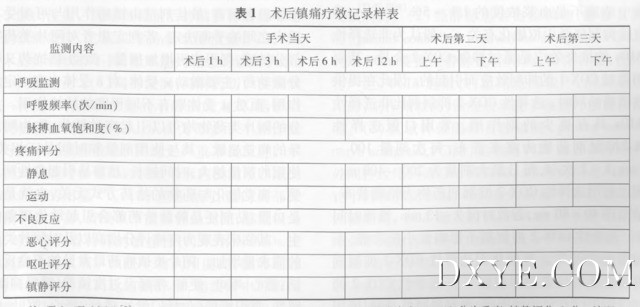 表1 术后镇痛疗效记录样表
监测内容 手术当天 术后第二天 术后第三天
术后1 h 术后3 h 术后6 h 术后12 h 上午 下午 上午 下午
呼吸监测
呼吸频率(次/min)
脉搏血氧饱和度(%)
疼痛评分
静息
运动
不良反应
恶心评分
呕吐评分
镇静评分
DXYE.COM